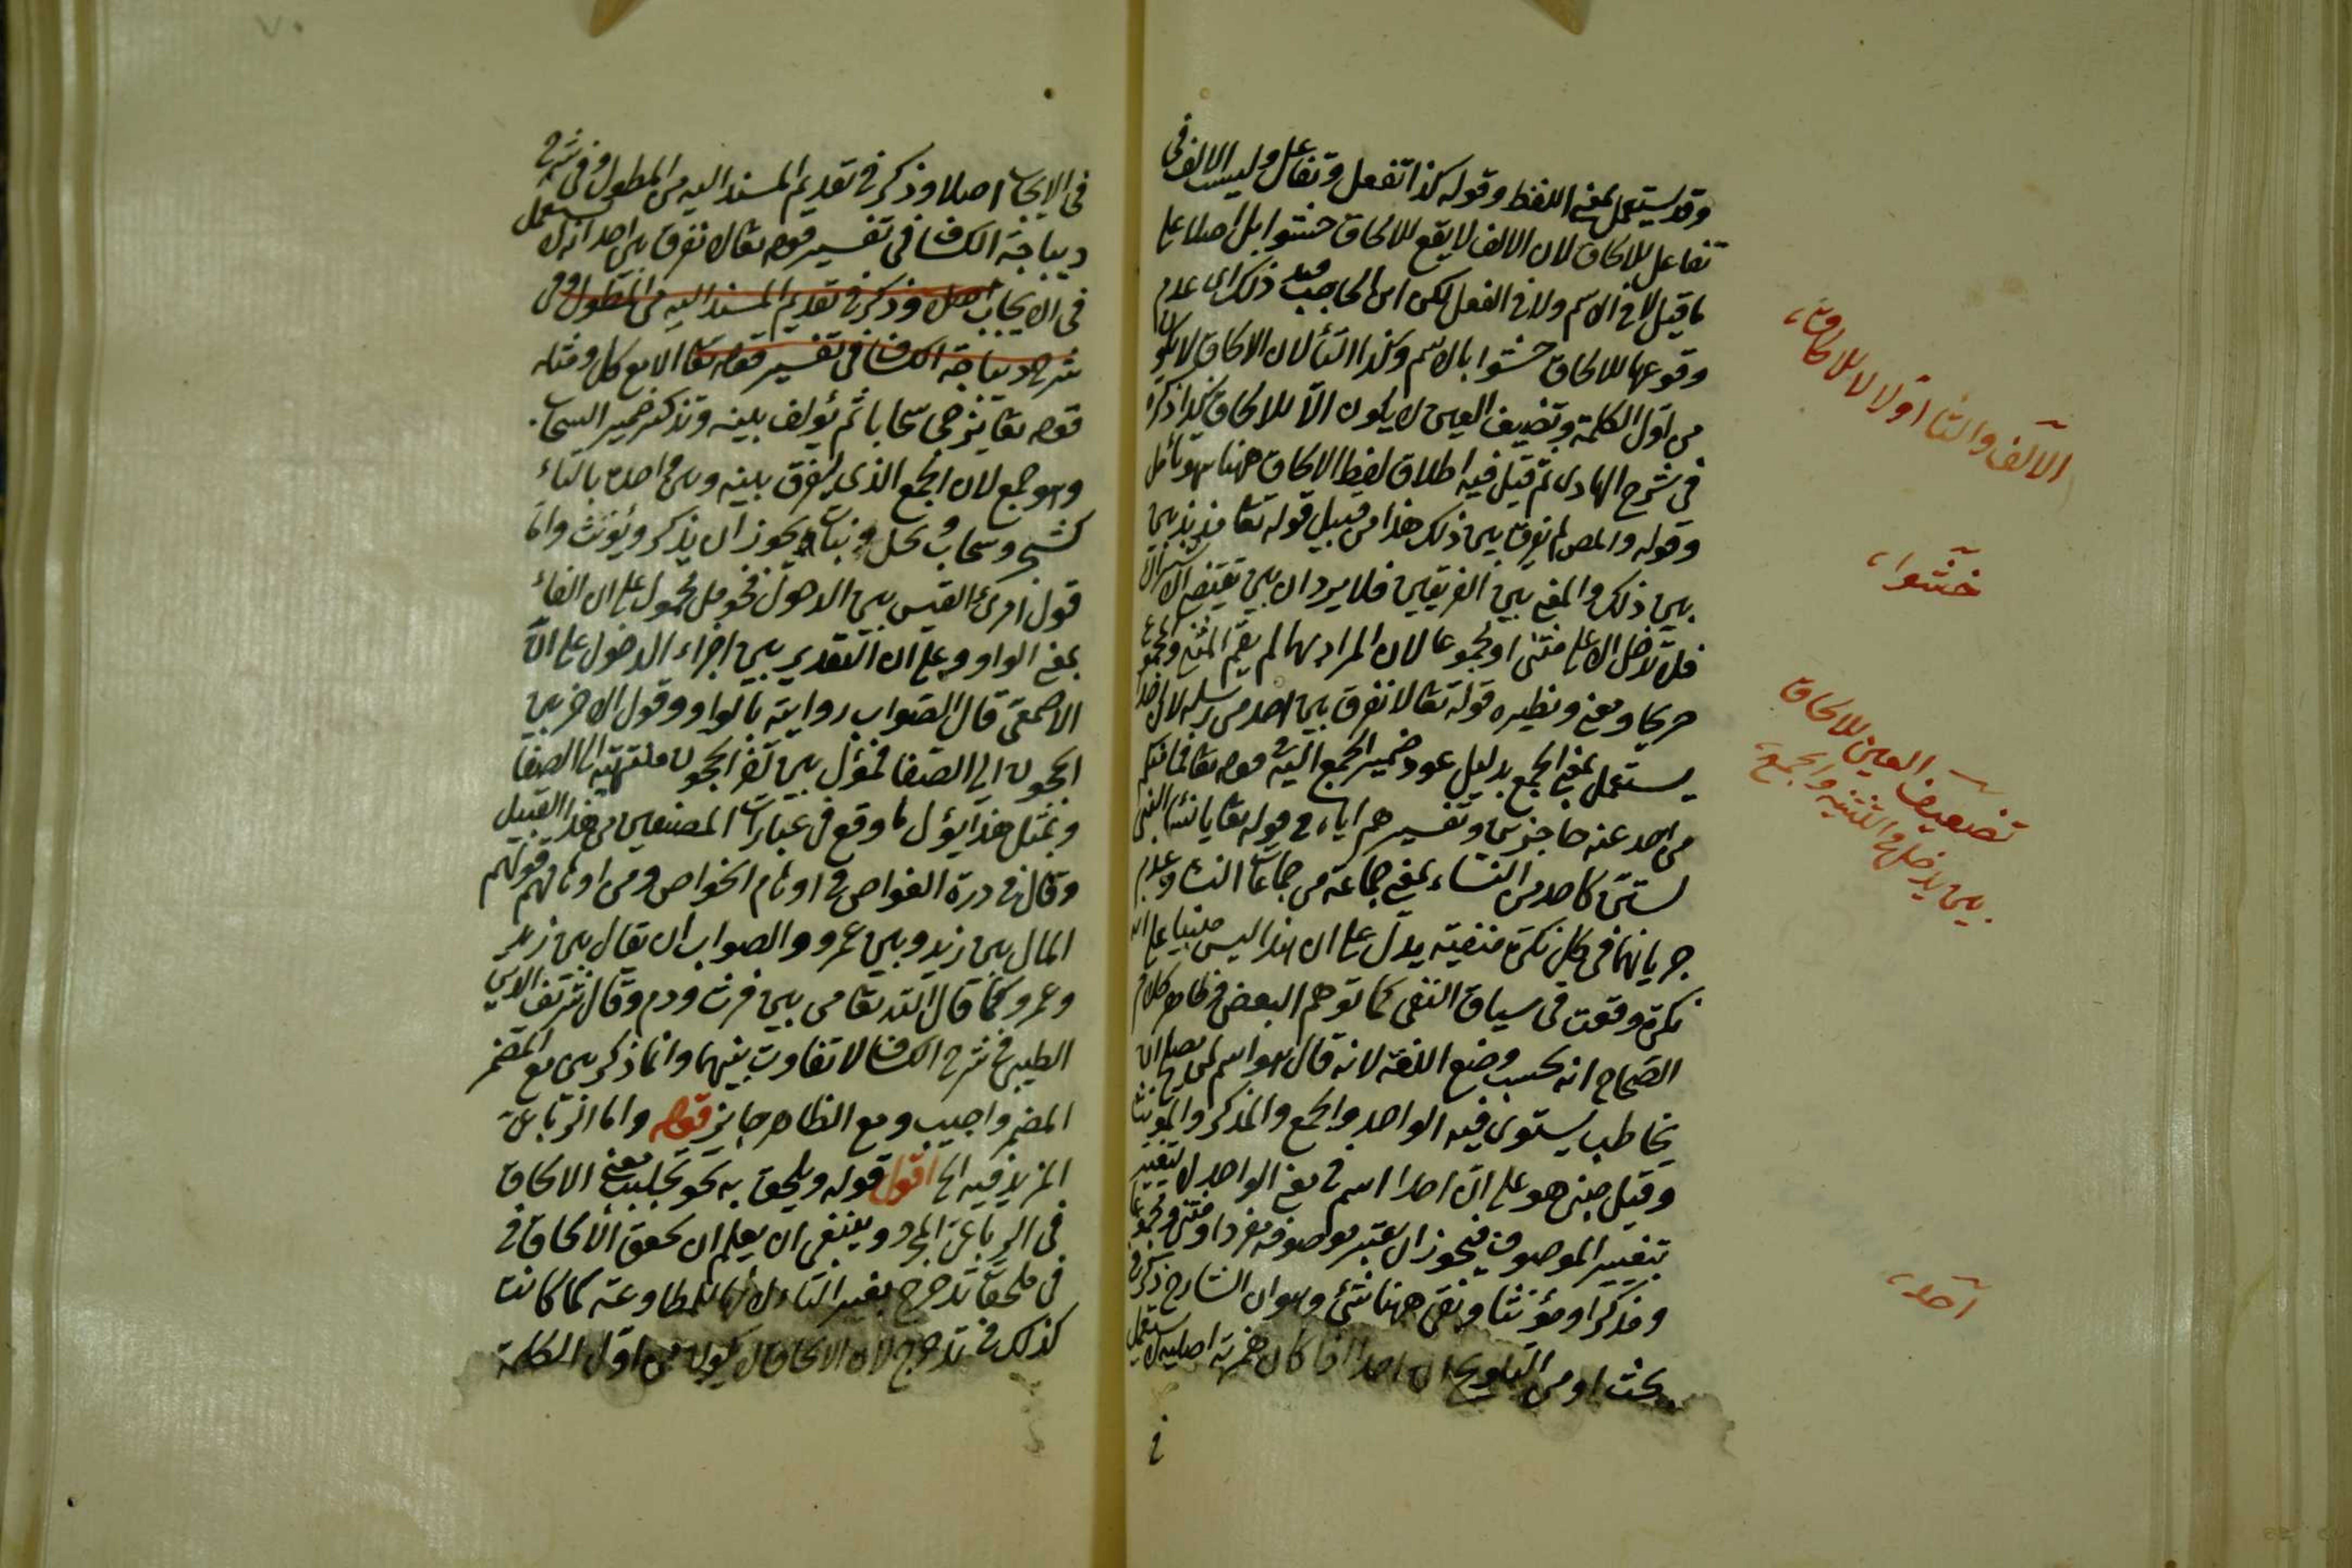 وقد يستعمل بمعنى اللفظ وقوله كذا تفعل وتفاعل وليست الالف في
تفاعل للالحاق لان الالف لا يقع للالحاق حشوا بل اصلا على
ما قيل لا في الاسم ولا في الفعل لكن ابن الحاجب قيد ذلك اى عدم
وقوعها للالحاق حشوا بالاسم وكذا التأ لان الالحاق لا يكون
من اول الكلمة وتضعيف العين لا يكون الا للالحاق كذا ذكره
في شرح الهادى ثم قيل فيه اطلاق لفظ الالحاق ههنا سهو تأمل
وقوله والمص لم يفرق بين ذلك هذا من قبيل قوله تعا مذبذبين
بين ذلك والمعنى بين الفريقين فلا يرد ان بين تقتضى الاشتراك
فلا تدخل الا على مثنى او مجموعا لان المراد بهما لم يقم المثنى والمجموع
صريحا ومعنى ونظيره قوله تعا لا نفرق بين احد من رسله لان احدا
يستعمل بمعنى الجمع بدليل عود ضمير الجمع اليه في قوله تعا فما منكم
من احد عنه حاجزين وتفسيرهم اياه في قوله تعا يا نساء النبى
لستن كاحد من النساء بمعنى جماعة من جماعات النساء وعدم
جريانها في كل نكرة منفية يدل على ان هذا ليس مبنيا على انه
نكرة وقعت في سياق النفى كما توهم البعض فظاهر كلام
الصحاح انه بحسب وضع اللغة لانه قال هو اسم لمن يصلح ان
يخاطب يستوى فيه الواحد والجمع والمذكر والمؤنث
وقيل مبنى هو على ان احدا اسم في معنى الواحد لا يتغير
بتغيير الموصوف فيجوز ان يعتبر موصوفه مفردا ومثنى ومجموعا
ومذكرا ومؤنثا وبقى ههنا شئ وهو ان الشارح ذكر في
بحث او من التلويح ان احدا اذا كان همزته اصلية لا يستعمل
في
الالف والتا اولا لا للالحاق
حشوا
تضعيف العين للالحاق
بين يدخل في التثنية والجمع
احد
٧٠
في الايجاب اصلا وذكر في تقديم المسند اليه من المطول وفي شرح
ديباجة الكشاف في تفسير قوله تعا لا نفرق بين احد انه لا يستعمل
في الايجاب اصلا وذكر في تقديم المسند اليه من المطول وفى
شرح ديباجة الكشاف في تفسير قوله تعا الا مع كل ومثله
قوله تعا يزجى سحابا ثم يؤلف بينه وتذكير ضمير السحاب
وهو جمع لان الجمع الذى يفرق بينه وبين واحده بالتاء
كشجر وسحاب ونخل ونبات يجوز ان يذكر ويؤنث واما
قول امرئ القيس بين الدخول فحومل محمول على ان الفاء
بمعنى الواو وعلى ان التقدير بين اجزاء الدخول على ان
الاصمعى قال الصواب روايته بالواو وقول الاخر بين
الحجون الى الصفا فمؤل بين الحجون منتهيه الى الصفا
وبمثل هذا يؤل ما وقع في عبارات المصنفين من هذا القبيل
وقال في درة الغواص في اوهام الخواص ومن اوهامهم قولهم
المال بين زيد وبين عمرو والصواب ان يقال بين زيد
وعمرو كما قال الله تعا من بين فرث ودم وقال شرف الدين
الطيبى في شرح الكشاف لا تفاوت بينهما وانما ذكر بين مع المضمر
المضمر واجب ومع الظاهر جايز قوله واما الرباعى
المزيد فيه الخ اقول قوله ويلحق به نحو تجلبب معنى الالحاق
في الرباعى المجرد وينبغى ان يعلم ان تحقق الالحاق في
في ملحقات تدحرج بغير التاء لانها للمطاوعة كما كانت
كذلك في تدحرج لان الالحاق لا يكون من اول الكلمة